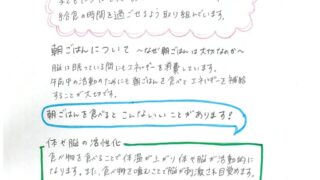 給食の時間を過ごせるよう取り組んでいます。
朝ごはんについて ～なぜ朝ごはんは大切なのか～
脳は眠っている間にもエネルギーを消費しています。
午前中の活動のためにも朝ごはんを食べてエネルギーを補給
することが大切です。
朝ごはんを食べると こんないいことがあります!
体や脳の活性化
食べ物を食べることで体温が上がり体や脳が活動的に
なります。また、食べ物を噛むことで脳が刺激され目覚めます。